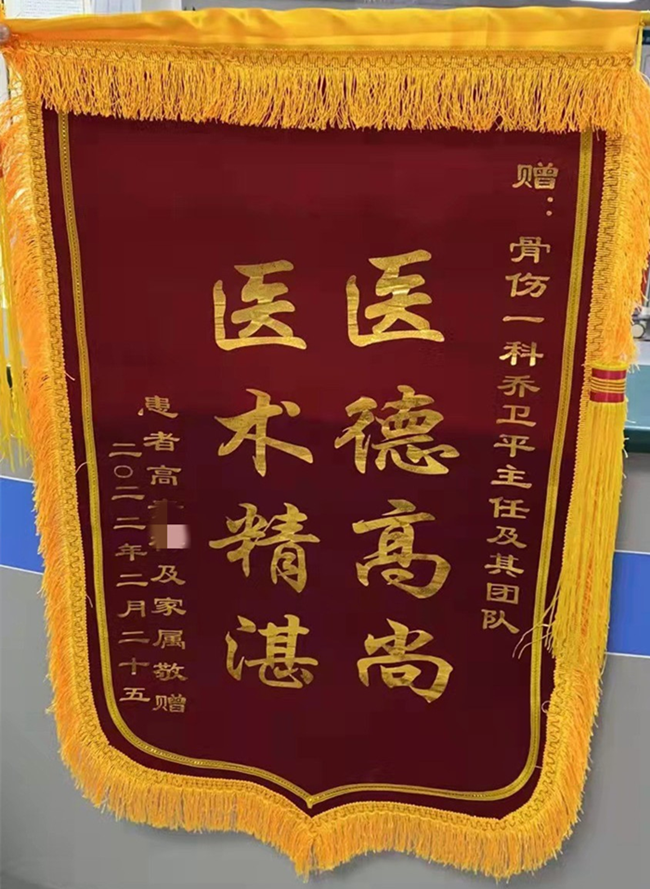 赠：骨伤一科乔卫平主任及其团队
医德高尚
医术精湛
患者高及家属敬赠
二〇二二年二月二十五